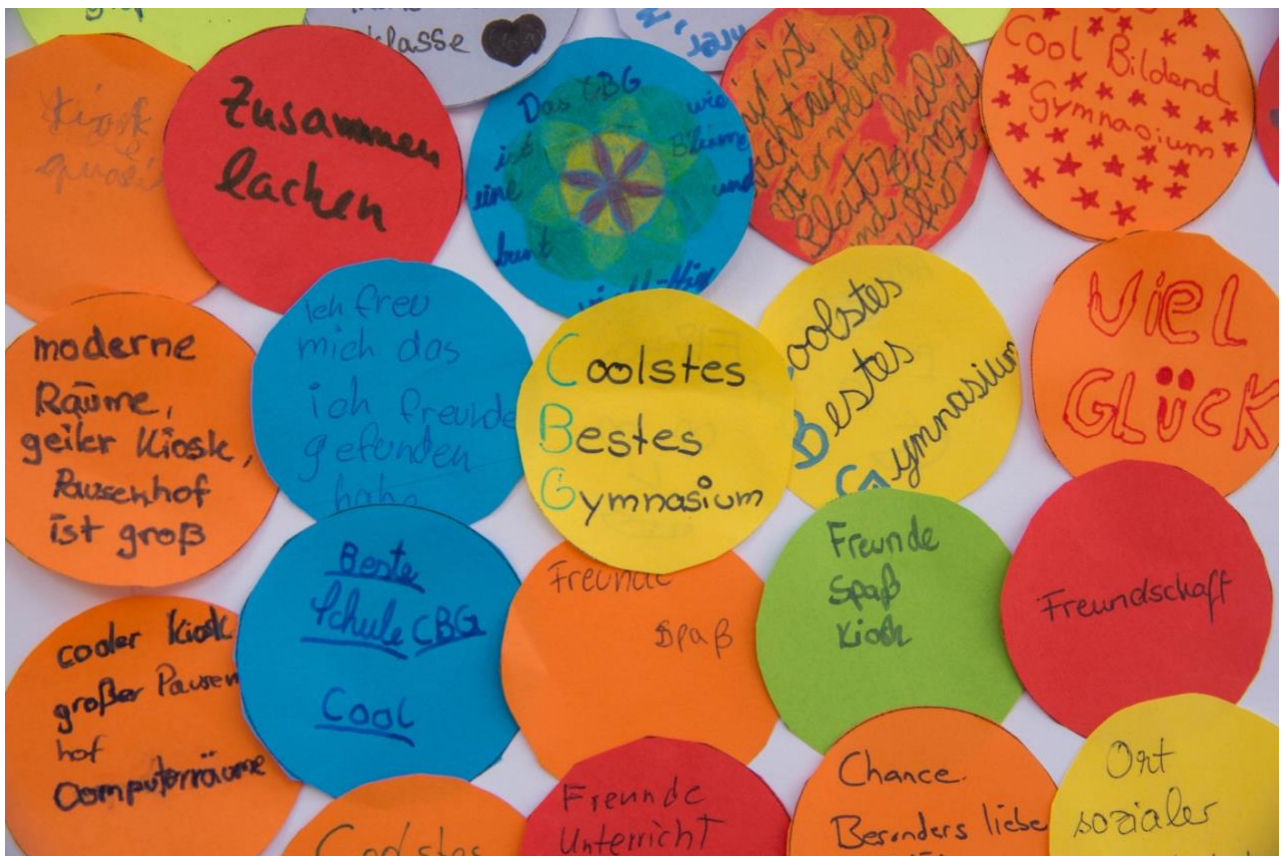 klasse
Kiosk
quasi
Zusammen
lachen
Das CBG
ist
eine
bunt
wie
Blume
und
ist
das
wir mehr
haben
Cool Bildend
Gymnasium
moderne
Räume,
geiler Kiosk,
Pausenhof
ist groß
Ich freu
mich das
ich freunde
gefunden
habn
Coolstes
Bestes
Gymnasium
Coolstes
Bestes
Gymnasium
Viel
GLÜCK
cooler Kiosk
großer Pausen
hof
Computerräume
Beste
Schule CBG
Cool
Freunde
Spaß
Freunde
Spaß
Kiosk
Freundschaft
Coolstes
Freunde
Unterricht
Chance.
Besonders liebe
Ort
sozialer